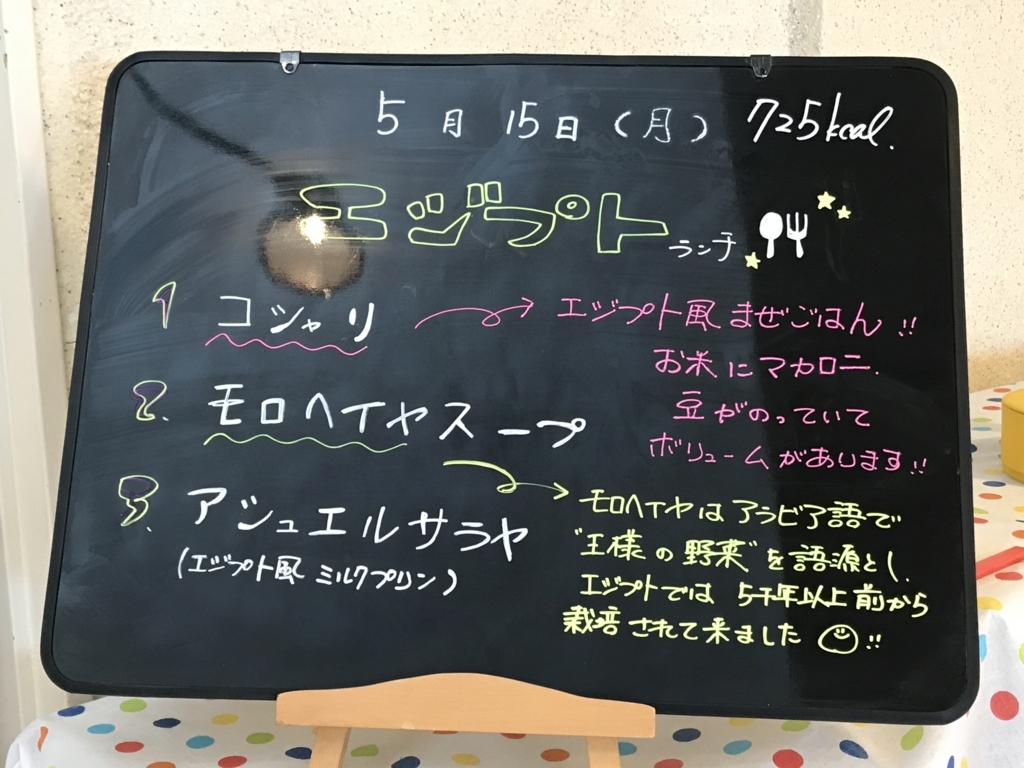 5月15日(月) 725kcal.
エジプト ランチ
1 コシャリ
エジプト風まぜごはん!!
お米にマカロニ.
豆がのっていて
ボリュームがあります!!
2. モロヘイヤスープ
モロヘイヤはアラビア語で
"王様の野菜"を語源とし、
エジプトでは5千年以上前から
栽培されて来ました!!
3. アシュエルサラヤ
(エジプト風 ミルクプリン)